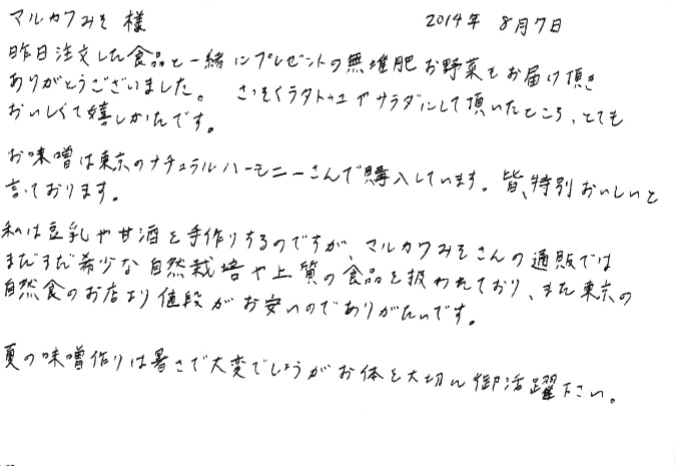 マルカワみそ 様 2014年 8月7日
昨日注文した食品と一緒にプレゼントの無堆肥お野菜をお届け頂き
ありがとうございました。 さっそくラタトゥユやサラダにして頂いたところ、とても
おいしくて嬉しかたです。
お味噌は東京のナチュラルハーモニーさんで購入しています。皆、特別おいしいと
言っております。
私は豆乳や甘酒を手作りするのですが、マルカワみそさんの通販では
まだまだ希少な自然栽培や上質の食品を扱われており、また東京の
自然食のお店より値段がお安いのでありがたいです。
夏の味噌作りは暑さで大変でしょうがお体を大切に御活躍下さい。